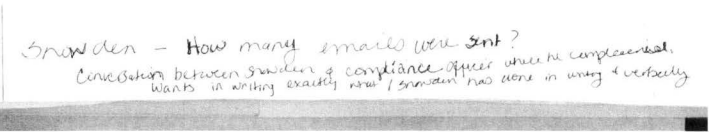 Snowden - How many emails were sent?
Conversation between Snowden & compliance officer where he complained.
Wants in writing exactly what / Snowden has done in writing & verbally